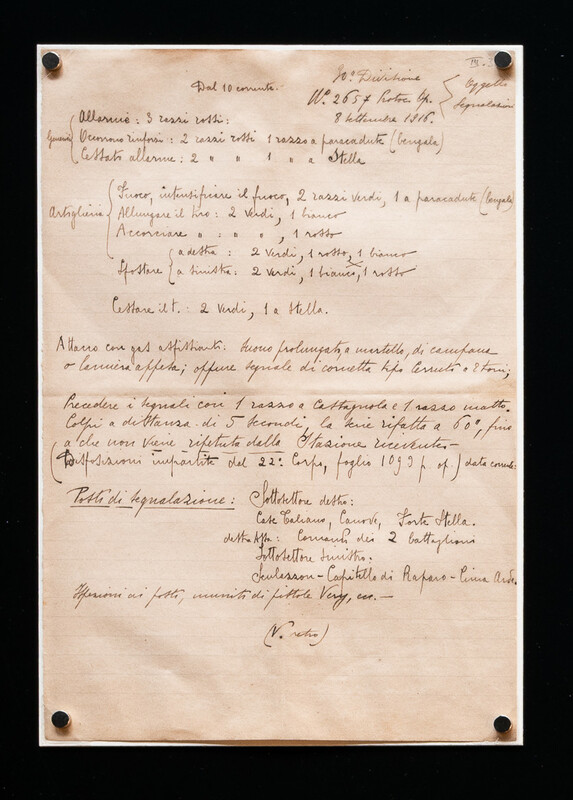 III.
30ª Divisione
Dal 10 corrente.
Nº 2657 Protoc. Op.
8 settembre 1916.
Oggetto
Segnalazioni
Allarme: 3 razzi rossi:
Generici
Occorrono rinforzi: 2 razzi rossi 1 razzo a paracadute (bengala)
Cessato allarme: 2 " " 1 " a Stella
Artiglieria
Fuoco, intensificare il fuoco, 2 razzi verdi, 1 a paracadute (bengala)
Allungare il tiro: 2 verdi, 1 bianco
Accorciare " : " " , 1 rosso
Spostare
a destra: 2 verdi, 1 rosso, 1 bianco
a sinistra: 2 verdi, 1 bianco, 1 rosso
Cessare il t.: 2 verdi, 1 a stella.
Attacco con gas asfissianti: suono prolungato a martello, di campana
o lamiera appesa; oppure segnale di cornetta tipo a 2 toni;
Precedere i segnali con 1 razzo a castagnola e 1 razzo matto.
Colpi a distanza di 5 secondi, la serie rifatta a 60", fino
a che non viene ripetuto dalla Stazione ricevente.
(Disposizioni impartite dal 22º Corpo, foglio 1093 p. op.) data corrente:
Posti di segnalazione: Sottosettore destro:
Case Canove, Forte Stella.
destra Assa: Comandi dei 2 battaglioni
Sottosettore sinistro:
Sculazzon - Capitello di Raparo - Cima Arde.
Ispezioni ai posti, muniti di pistole Very, ecc. —
(V. retro)